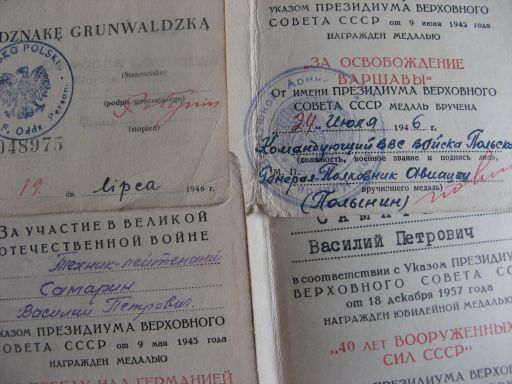 DZNAKĘ GRUNWALDZKĄ
KO POLSKI
(Stanowisko)
(podpis wręczającego)
F. Oddz. Person.
(stopień)
048975
19 dn. lipca 1946 r.
УКАЗОМ ПРЕЗИДИУМА ВЕРХОВНОГО
СОВЕТА СССР от 9 июня 1945 года
НАГРАЖДЕН МЕДАЛЬЮ
"ЗА ОСВОБОЖДЕНИЕ
ВАРШАВЫ"
От имени ПРЕЗИДИУМА ВЕРХОВНОГО
СОВЕТА СССР МЕДАЛЬ ВРУЧЕНА
24 „ июля 1946 г.
Командующий ВВС Войска Польско
(должность, военное звание и подпись лица,
М. П. Генерал-Полковник Авиации
вручившего медаль)
(Полынин)
ЗА УЧАСТИЕ В ВЕЛИКОЙ
ОТЕЧЕСТВЕННОЙ ВОЙНЕ
Техник-лейтенант
Самарин
Василий Петрович
УКАЗОМ ПРЕЗИДИУМА ВЕРХОВНОГО
СОВЕТА СССР от 9 мая 1945 года
НАГРАЖДЕН МЕДАЛЬЮ
ПОБЕДУ НАД ГЕРМАНИЕЙ
Василий Петрович
в соответствии с Указом ПРЕЗИДИ
ВЕРХОВНОГО СОВЕТА СО
от 18 декабря 1957 года
НАГРАЖДЕН ЮБИЛЕЙНОЙ МЕДАЛЬЮ
„40 ЛЕТ ВООРУЖЕННЫХ
СИЛ СССР"